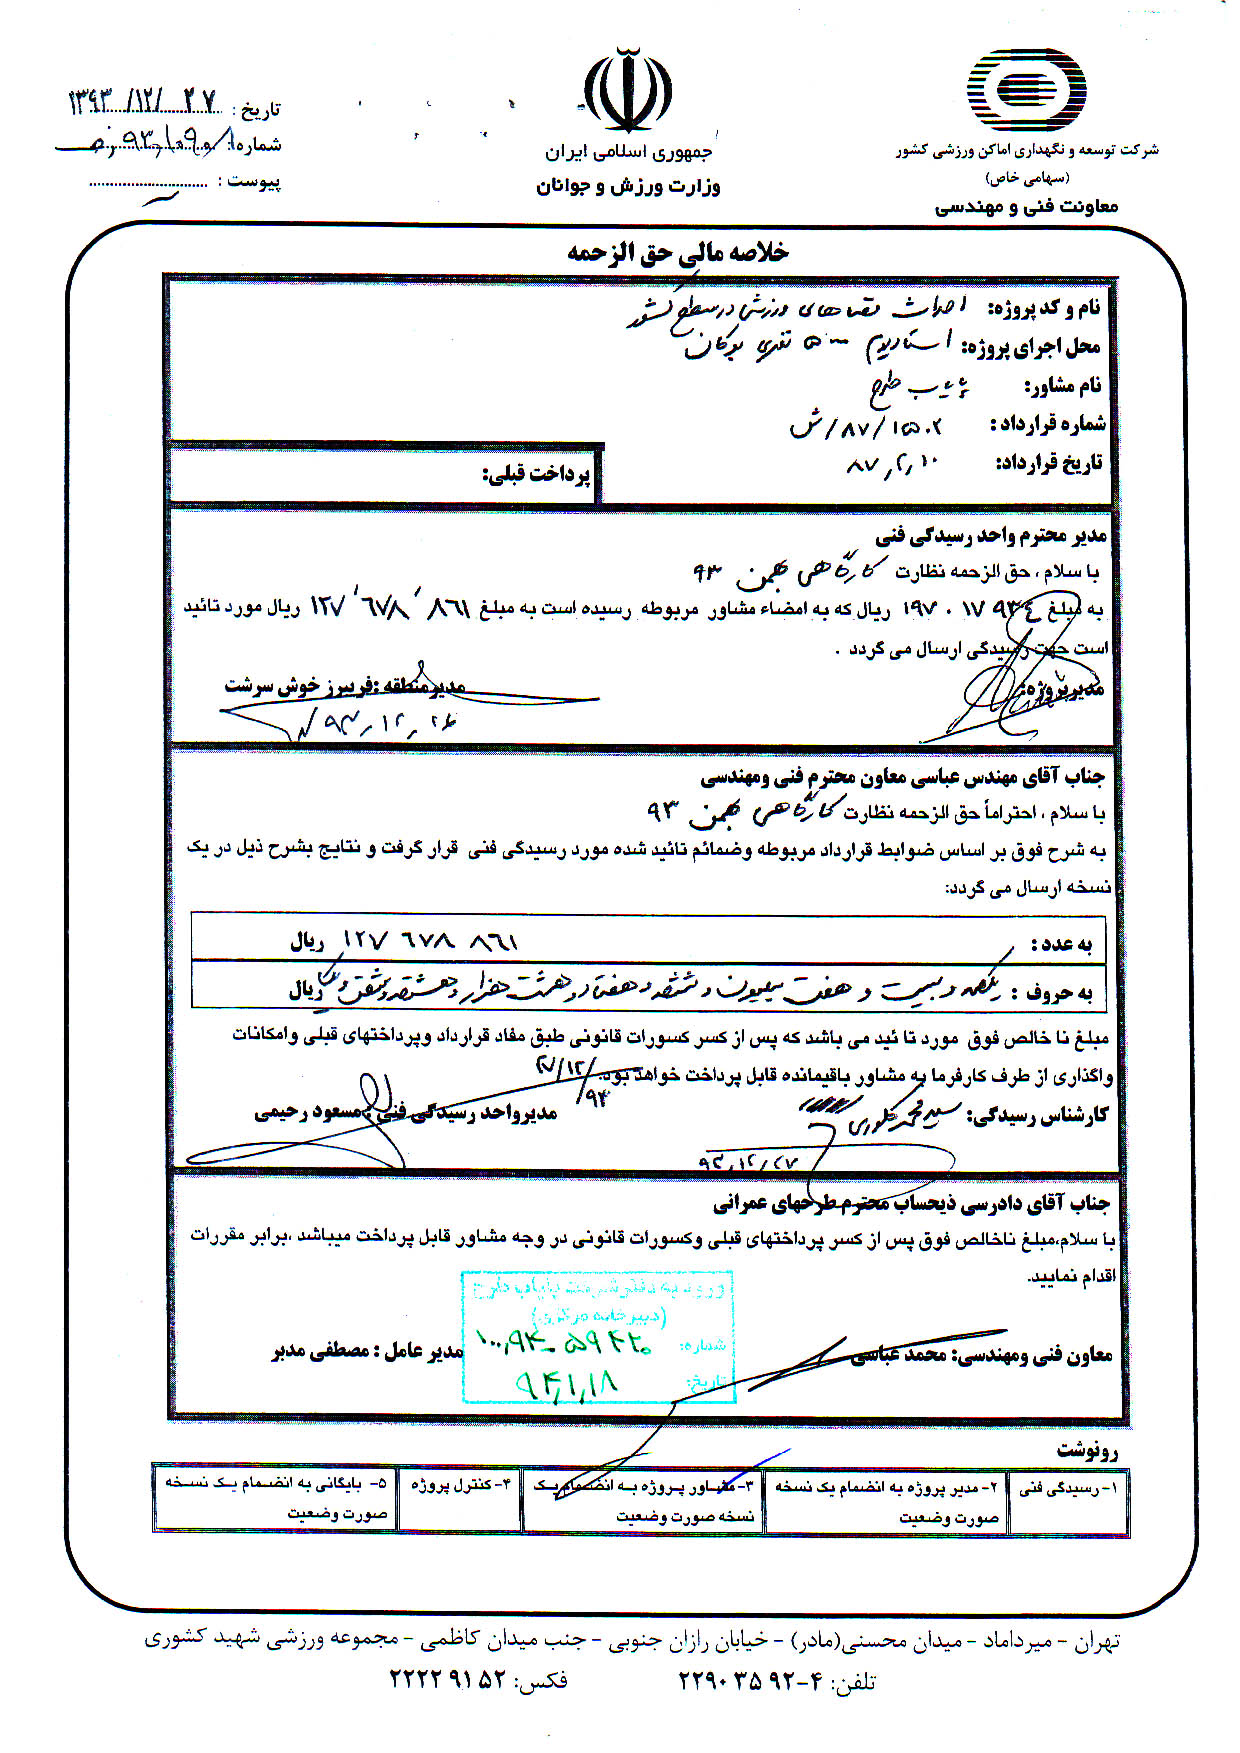 شرکت توسعه و نگهداری اماکن ورزشی کشور
(سهامی خاص)
معاونت فنی و مهندسی
جمهوری اسلامی ایران
وزارت ورزش و جوانان
تاریخ : ۱۳۹۳/۱۲/۲۷
شماره:
پیوست :
خلاصه مالی حق الزحمه
نام و کد پروژه: احداث فضاهای ورزشی در سطح کشور
محل اجرای پروژه: استادیوم ۵۰۰۰ نفری بوکان
نام مشاور: پایاب طرح
شماره قرارداد : ۱۵۰۲/۸۷/ش
تاریخ قرارداد: ۸۷,۲,۱۰
پرداخت قبلی:
مدیر محترم واحد رسیدگی فنی
با سلام ، حق الزحمه نظارت کارگاهی بهمن ۹۳
به مبلغ ۱۹۷۰۱۷۹۳۴ ریال که به امضاء مشاور مربوطه رسیده است به مبلغ ۱۲۷٬۶۷۸٬۸۶۱ ریال مورد تائید
است جهت رسیدگی ارسال می گردد .
مدیر پروژه:
مدیر منطقه :فریبرز خوش سرشت
۹۳,۱۲,۲۶
جناب آقای مهندس عباسی معاون محترم فنی ومهندسی
با سلام ، احتراماً حق الزحمه نظارت کارگاهی بهمن ۹۳
به شرح فوق بر اساس ضوابط قرارداد مربوطه وضمائم تائید شده مورد رسیدگی فنی قرار گرفت و نتایج بشرح ذیل در یک
نسخه ارسال می گردد:
به عدد : ۱۲۷ ۶۷۸ ۸۶۱ ریال
به حروف : یکصد و بیست و هفت میلیون و ششصد و هفتاد و هشت هزار و هشتصد و شصت و یک ریال
مبلغ نا خالص فوق مورد تا ئید می باشد که پس از کسر کسورات قانونی طبق مفاد قرارداد وپرداختهای قبلی وامکانات
واگذاری از طرف کارفرما به مشاور باقیمانده قابل پرداخت خواهد بود.
۲۷/۱۲/۹۳
کارشناس رسیدگی: سید محمد
مدیرواحد رسیدگی فنی : مسعود رحیمی
۹۳,۱۲/۲۷
جناب آقای دادرسی ذیحساب محترم طرحهای عمرانی
با سلام،مبلغ ناخالص فوق پس از کسر پرداختهای قبلی وکسورات قانونی در وجه مشاور قابل پرداخت میباشد ،برابر مقررات
اقدام نمایید.
ورود به دفتر شرکت پایاب طرح
(دبیرخانه مرکزی)
شماره:
تاریخ: ۹۴,۱,۱۸
معاون فنی ومهندسی: محمد عباسی
مدیر عامل : مصطفی مدبر
رونوشت
۱- رسیدگی فنی
۲- مدیر پروژه به انضمام یک نسخه صورت وضعیت
۳- مشاور پروژه به انضمام یک نسخه صورت وضعیت
۴- کنترل پروژه
۵- بایگانی به انضمام یک نسخه صورت وضعیت
تهران - میرداماد - میدان محسنی(مادر) - خیابان رازان جنوبی - جنب میدان کاظمی - مجموعه ورزشی شهید کشوری
تلفن: ۴-۲۲۹۰۳۵۹۲ فکس: ۲۲۲۲۹۱۵۲